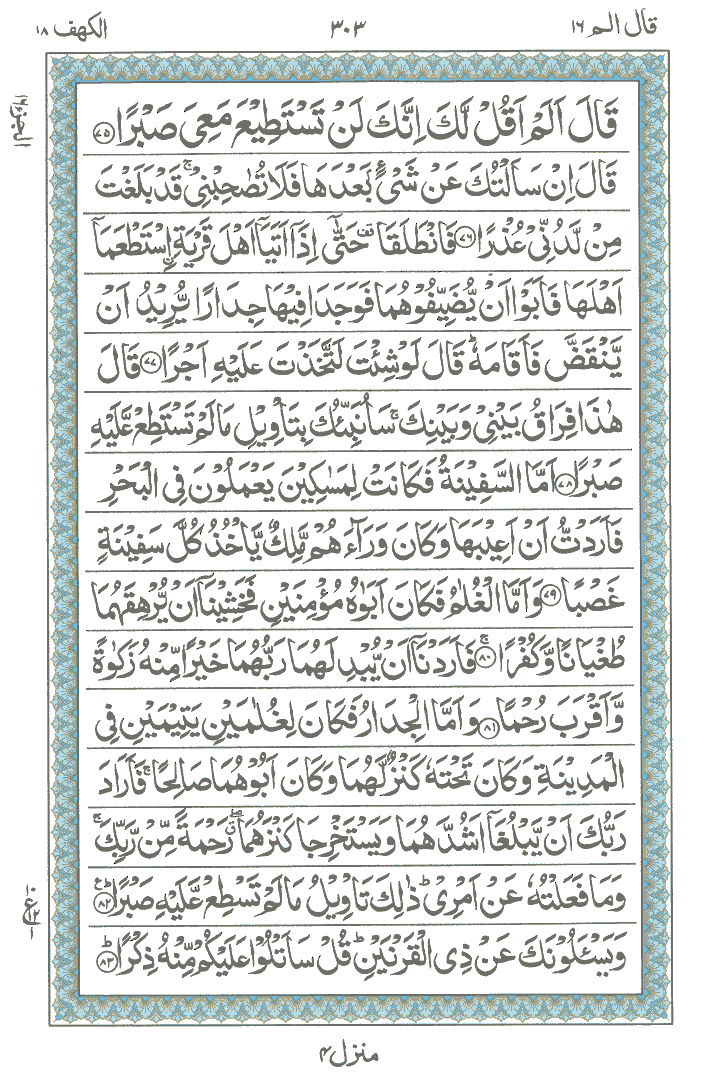 قال الم ١٦
٣٠٣
الكهف ١٨
الجزء ١٦
قَالَ اَلَمْ اَقُلْ لَّكَ اِنَّكَ لَنْ تَسْتَطِيْعَ مَعِىَ صَبْرًا ﴿٧٥﴾
قَالَ اِنْ سَاَلْتُكَ عَنْ شَىْءٍۭ بَعْدَهَا فَلَا تُصٰحِبْنِىْ ۚ قَدْ بَلَغْتَ
مِنْ لَّدُنِّىْ عُذْرًا ﴿٧٦﴾ فَانْطَلَقَا ۥ حَتّٰٓى اِذَآ اَتَيَآ اَهْلَ قَرْيَةِ ۨاسْتَطْعَمَآ
اَهْلَهَا فَاَبَوْا اَنْ يُّضَيِّفُوْهُمَا فَوَجَدَا فِيْهَا جِدَارًا يُّرِيْدُ اَنْ
يَّنْقَضَّ فَاَقَامَهٗ ؕ قَالَ لَوْ شِئْتَ لَتَّخَذْتَ عَلَيْهِ اَجْرًا ﴿٧٧﴾ قَالَ
هٰذَا فِرَاقُ بَيْنِىْ وَبَيْنِكَ ۚ سَاُنَبِّئُكَ بِتَاْوِيْلِ مَا لَمْ تَسْتَطِعْ عَّلَيْهِ
صَبْرًا ﴿٧٨﴾ اَمَّا السَّفِيْنَةُ فَكَانَتْ لِمَسٰكِيْنَ يَعْمَلُوْنَ فِى الْبَحْرِ
فَاَرَدْتُّ اَنْ اَعِيْبَهَا وَكَانَ وَرَآءَهُمْ مَّلِكٌ يَّاْخُذُ كُلَّ سَفِيْنَةٍ
غَصْبًا ﴿٧٩﴾ وَاَمَّا الْغُلٰمُ فَكَانَ اَبَوٰهُ مُؤْمِنَيْنِ فَخَشِيْنَآ اَنْ يُّرْهِقَهُمَا
طُغْيَانًا وَّكُفْرًا ۚ ﴿٨٠﴾ فَاَرَدْنَآ اَنْ يُّبْدِلَهُمَا رَبُّهُمَا خَيْرًا مِّنْهُ زَكٰوةً
وَّاَقْرَبَ رُحْمًا ﴿٨١﴾ وَاَمَّا الْجِدَارُ فَكَانَ لِغُلٰمَيْنِ يَتِيْمَيْنِ فِى
الْمَدِيْنَةِ وَكَانَ تَحْتَهٗ كَنْزٌ لَّهُمَا وَكَانَ اَبُوْهُمَا صَالِحًا ۚ فَاَرَادَ
رَبُّكَ اَنْ يَّبْلُغَآ اَشُدَّهُمَا وَيَسْتَخْرِجَا كَنْزَهُمَا ۖ رَحْمَةً مِّنْ رَّبِّكَ ۚ
وَمَا فَعَلْتُهٗ عَنْ اَمْرِىْ ؕ ذٰلِكَ تَاْوِيْلُ مَا لَمْ تَسْطِعْ عَّلَيْهِ صَبْرًا ؕ ﴿٨٢﴾
وَيَسْئَلُوْنَكَ عَنْ ذِى الْقَرْنَيْنِ ؕ قُلْ سَاَتْلُوْا عَلَيْكُمْ مِّنْهُ ذِكْرًا ؕ ﴿٨٣﴾
منزل ٤